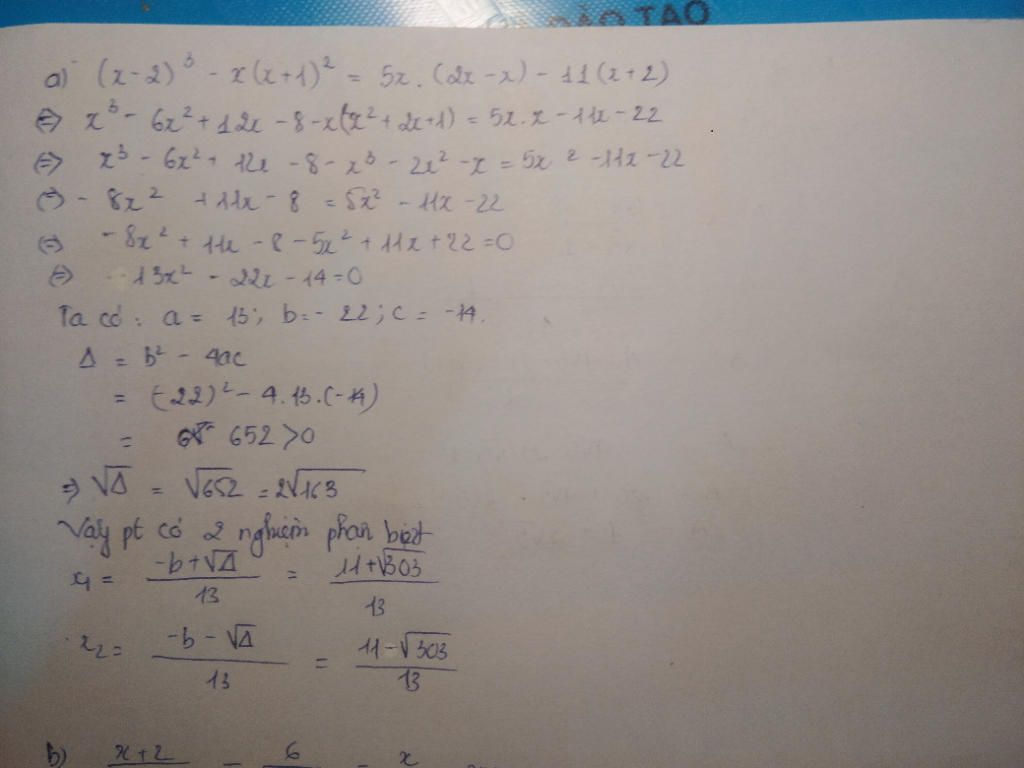 ĐÀO TẠO
a) (x-2)³ - x(x+1)² = 5x.(2x-x) - 11(x+2)
⇔ x³ - 6x² + 12x - 8 - x(x² + 2x+1) = 5x.x - 11x - 22
⇔ x³ - 6x² + 12x - 8 - x³ - 2x² - x = 5x² - 11x - 22
⇔ - 8x² + 11x - 8 = 5x² - 11x - 22
⇔ -8x² + 11x - 8 - 5x² + 11x + 22 = 0
⇔ 13x² - 22x - 14 = 0
Ta có: a = 13; b = - 22; c = -14.
Δ = b² - 4ac
= (-22)² - 4.13.(-14)
= 652 > 0
⇒ √Δ = √652 = 2√163
Vậy pt có 2 nghiệm phân biệt
x₁ = (-b+√Δ)/13 = (11+√303)/13
x₂ = (-b-√Δ)/13 = (11-√303)/13
b) x+2 - 6 = x